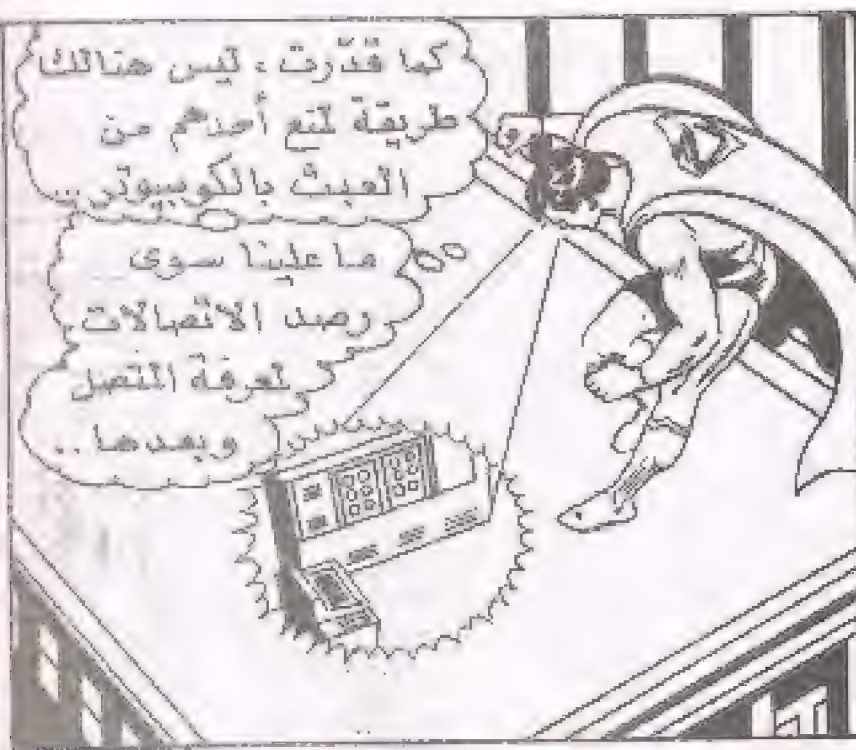 كما قدّرت، ليس هنالك
طريقة لمنع أحدهم من
العبث بالكومبيوتر...
ما علينا سوى
رصد الاتصالات
لمعرفة المتصل
وبعدها..